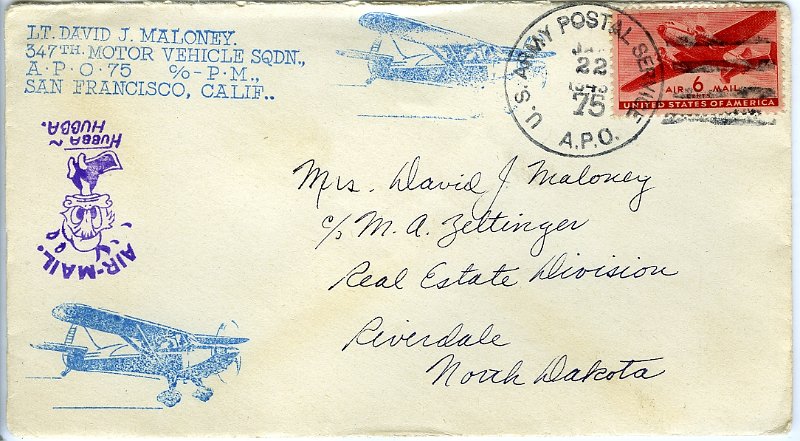 LT. DAVID J. MALONEY.
347TH. MOTOR VEHICLE SQDN.,
A.P.O. 75 c/o-P.M.,
SAN FRANCISCO, CALIF..
U.S. ARMY POSTAL SERVICE
22
75
A.P.O.
AIR 6 MAIL
UNITED STATES OF AMERICA
HUBBA~
HUBBA.
AIR-MAIL.
Mrs. David J. Maloney
c/o M. A. Zeltinger
Real Estate Division
Riverdale
North Dakota